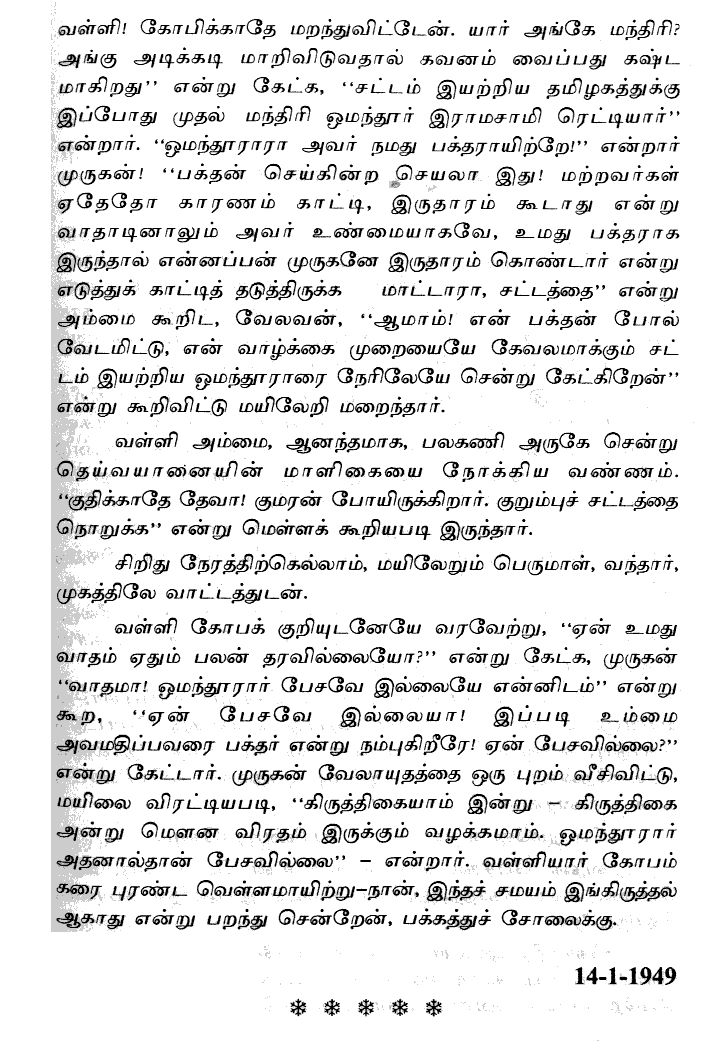 வள்ளி! கோபிக்காதே மறந்துவிட்டேன். யார் அங்கே மந்திரி?
அங்கு அடிக்கடி மாறிவிடுவதால் கவனம் வைப்பது கஷ்ட
மாகிறது'' என்று கேட்க, ''சட்டம் இயற்றிய தமிழகத்துக்கு
இப்போது முதல் மந்திரி ஓமந்தூர் இராமசாமி ரெட்டியார்''
என்றார். ''ஓமந்தூராரா அவர் நமது பக்தராயிற்றே!'' என்றார்
முருகன்! ''பக்தன் செய்கின்ற செயலா இது! மற்றவர்கள்
ஏதேதோ காரணம் காட்டி, இருதாரம் கூடாது என்று
வாதாடினாலும் அவர் உண்மையாகவே, உமது பக்தராக
இருந்தால் என்னப்பன் முருகனே இருதாரம் கொண்டார் என்று
எடுத்துக் காட்டித் தடுத்திருக்க மாட்டாரா, சட்டத்தை'' என்று
அம்மை கூறிட, வேலவன், ''ஆமாம்! என் பக்தன் போல்
வேடமிட்டு, என் வாழ்க்கை முறையையே கேவலமாக்கும் சட்
டம் இயற்றிய ஓமந்தூராரை நேரிலேயே சென்று கேட்கிறேன்''
என்று கூறிவிட்டு மயிலேறி மறைந்தார்.
வள்ளி அம்மை, ஆனந்தமாக, பலகணி அருகே சென்று
தெய்வயானையின் மாளிகையை நோக்கிய வண்ணம்.
''குதிக்காதே தேவா! குமரன் போயிருக்கிறார். குறும்புச் சட்டத்தை
நொறுக்க'' என்று மெள்ளக் கூறியபடி இருந்தார்.
சிறிது நேரத்திற்கெல்லாம், மயிலேறும் பெருமாள், வந்தார்,
முகத்திலே வாட்டத்துடன்.
வள்ளி கோபக் குறியுடனேயே வரவேற்று, ''ஏன் உமது
வாதம் ஏதும் பலன் தரவில்லையோ?'' என்று கேட்க, முருகன்
''வாதமா! ஓமந்தூரார் பேசவே இல்லையே என்னிடம்'' என்று
கூற, ''ஏன் பேசவே இல்லையா! இப்படி உம்மை
அவமதிப்பவரை பக்தர் என்று நம்புகிறீரே! ஏன் பேசவில்லை?''
என்று கேட்டார். முருகன் வேலாயுதத்தை ஒரு புறம் வீசிவிட்டு,
மயிலை விரட்டியபடி, ''கிருத்திகையாம் இன்று – கிருத்திகை
அன்று மௌன விரதம் இருக்கும் வழக்கமாம். ஓமந்தூரார்
அதனால்தான் பேசவில்லை'' – என்றார். வள்ளியார் கோபம்
கரை புரண்ட வெள்ளமாயிற்று–நான், இந்தச் சமயம் இங்கிருத்தல்
ஆகாது என்று பறந்து சென்றேன், பக்கத்துச் சோலைக்கு.
14-1-1949